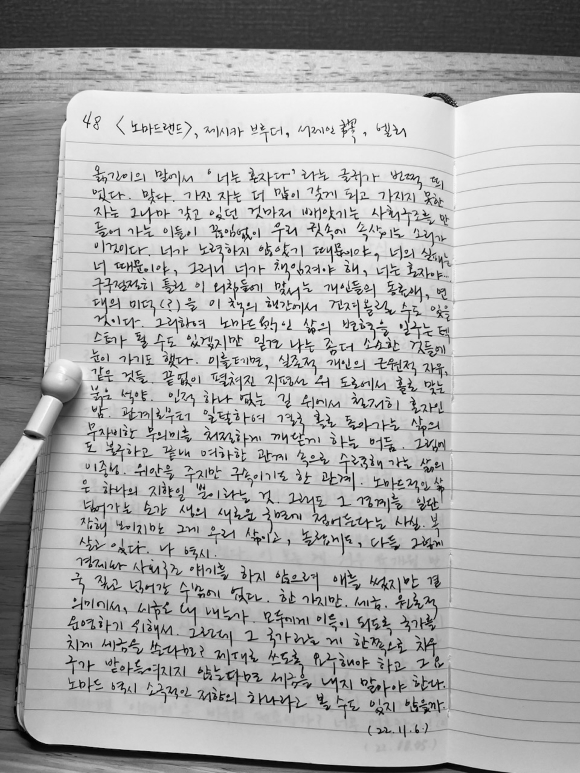 48 <노마드랜드>, 제시카 브루더, 서제인 譯, 엘리
옮긴이의 말에서 '너는 혼자다'라는 글귀가 번쩍 띄
었다. 맞다. 가진 자는 더 많이 갖게 되고 가지지 못한
자는 그나마 갖고 있던 것까지 빼앗기는 사회구조를 만
들어 가는 이들이 끊임없이 우리 귓속에 속삭이는 소리가
이것이다. 너가 노력하지 않았기 때문이야, 너의 실패는
너 때문이야, 그러니 너가 책임져야 해, 너는 혼자야…
구구절절히 틀린 이 외침들에 맞서는 개인들의 동료애, 연
대의 미덕(?)을 이 책의 행간에서 건져볼 수도 있을
것이다. 그리하여 노마드적인 삶의 변혁을 일구는 텍
스트가 될 수도 있겠지만 일견 나는 좀더 소소한 것들에
눈이 가기도 했다. 이를테면, 실존적 개인의 근원적 자유,
같은 것들. 끝없이 펼쳐진 지평선 위 도로에서 홀로 맞는
붉은 석양. 인적 하나 없는 길 위에서 철저히 혼자인
밤. 관계로부터 일탈하여 결국 홀로 돌아가는 삶의
무자비한 무의미를 처절하게 깨닫게 하는 어둠. 그럼에
도 불구하고 끝내 여하한 관계 속으로 수렴해 가는 삶의
이중성. 위안을 주지만 구속이기도 한 관계. 노마드적인 삶
은 하나의 지향일 뿐이라는 것. 그래도 그 경계를 일단
넘어가는 순간 생의 새로운 국면에 접어든다는 사실. 복
잡해 보이지만 그게 우리 삶이고, 놀랍게도 다들 그렇게
살고 있다. 나 역시.
경제와 사회구조 얘기를 하지 않으려 애를 썼지만 결
국 짚고 넘어갈 수밖에 없다. 한 가지만. 세금. 원론적
의미에서, 세금은 왜 내는가. 모두에게 이득이 되도록 국가를
운영하기 위해서. 그런데 그 국가라는 게 한쪽으로 치우
치게 세금을 쓴다면? 제대로 쓰도록 요구해야 하고 그 요
구가 받아들여지지 않는다면 세금을 내지 말아야 한다.
노마드 역시 소극적인 저항의 하나라고 볼 수도 있지 않을까.
(22.11.6.)